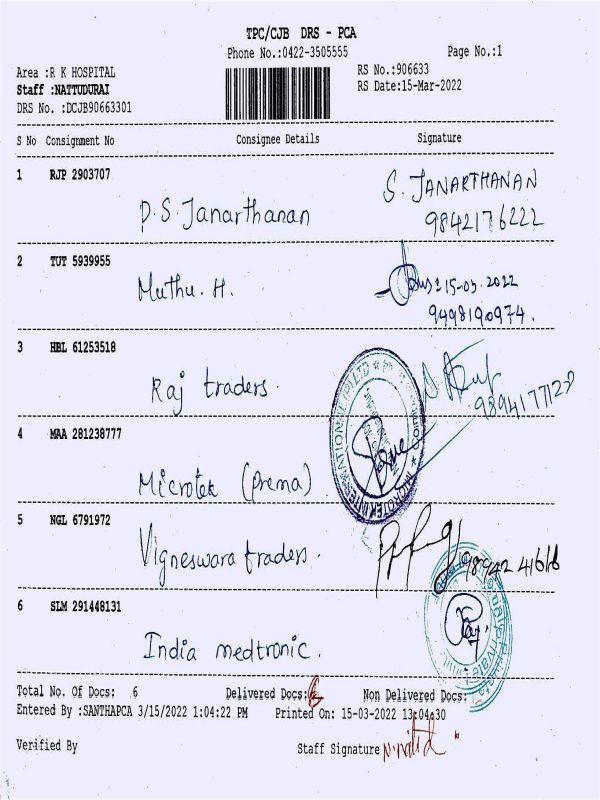 TPC/CJB DRS - PCA
Phone No.:0422-3505555 Page No.:1
Area :R K HOSPITAL RS No.:906633
Staff :NATTUDURAI RS Date:15-Mar-2022
DRS No. :DCJB90663301
S No Consignment No Consignee Details Signature
1 RJP 2903707 S. JANARTHANAN
P.S. Janarthanan 9842176222
2 TUT 5939955
Muthu. H. 15-03.2022
9498190974.
3 HBL 61253518
Raj traders.
9894177122
4 MAA 281238777
Microtek (Prema)
5 NGL 6791972
Vigneswara traders. 98942 41616
6 SLM 291448131
India medtronic.
Total No. Of Docs: 6 Delivered Docs: 6 Non Delivered Docs:
Entered By :SANTHAPCA 3/15/2022 1:04:22 PM Printed On: 15-03-2022 13:04:30
Verified By Staff Signature